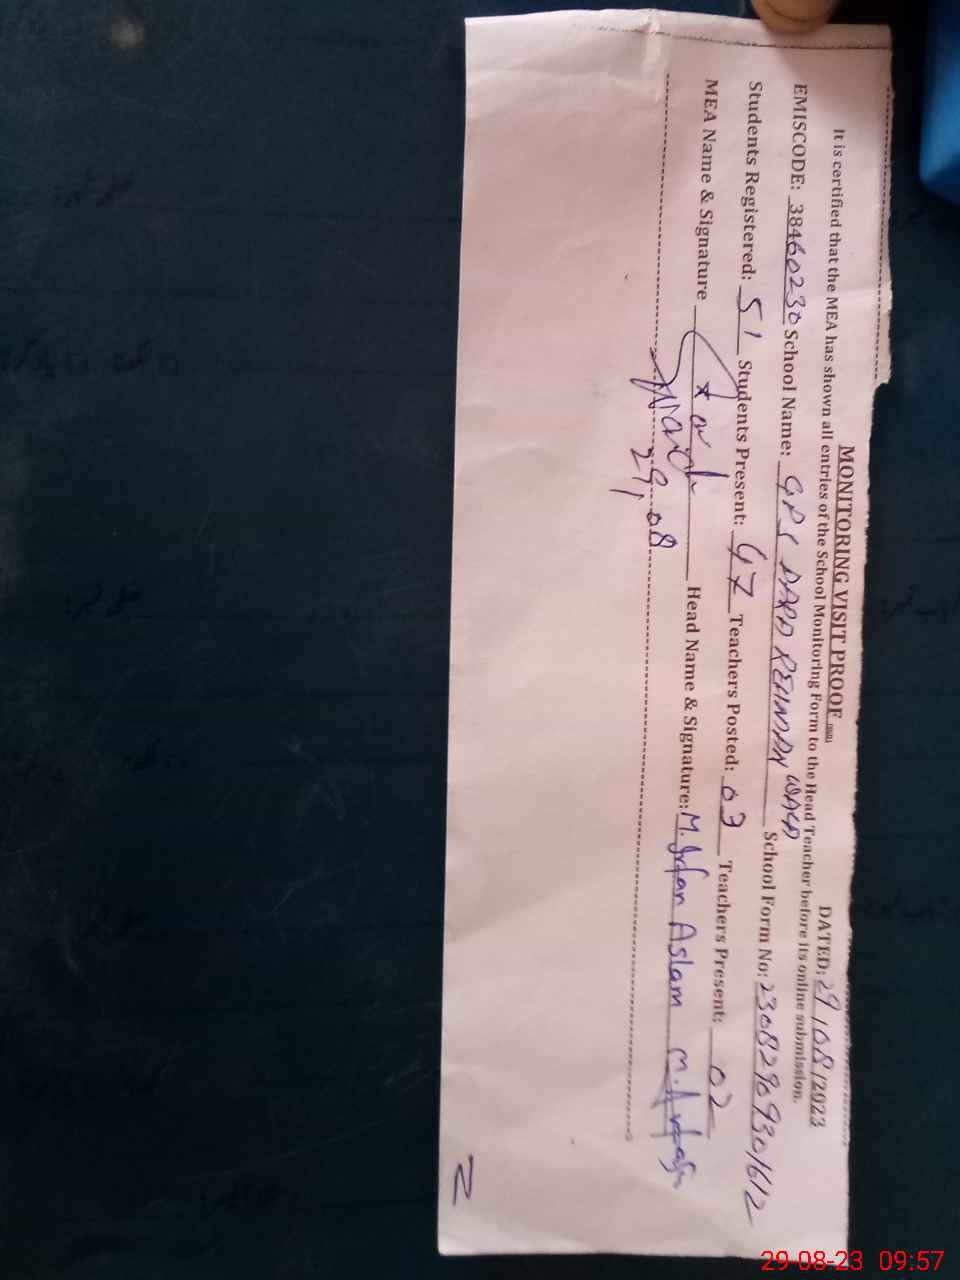 MONITORING VISIT PROOF DATED: 29/08/2023
It is certified that the MEA has shown all entries of the School Monitoring Form to the Head Teacher before its online submission.
EMISCODE: 38460230 School Name: GPS DARA REHMAN WALA School Form No: 23082909301612
Students Registered: 51 Students Present: 47 Teachers Posted: 03 Teachers Present: 02
MEA Name & Signature Head Name & Signature: M. Irfan Aslam
29/08
29-08-23 09:57